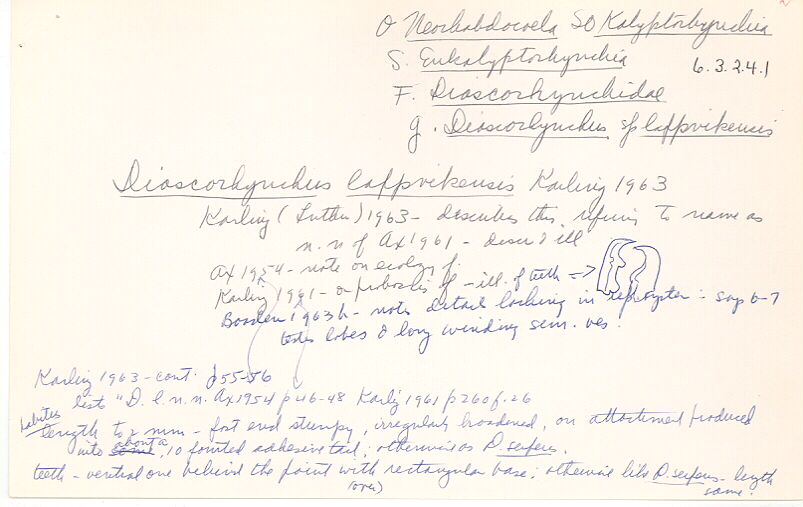 O Neorhabdocoela SO Kalyptorhynchia
S. Eukalyptorhynchia 6.3.2.4.1
F. Diascorhynchidae
g. Diascorhynchus sp lappvikensis
Diascorhynchus lappvikensis Karling 1963
Karling (Luther) 1963 - describes this, refering to name as
n. n of Ax 1961 - descr & ill
Ax 1954 - note on ecology of.
Karling 1961 - on proboscis of - ill. of teeth =>
Boaden 1963b - notes detail lacking in : say 6-7
testes lobes & long winding sem. ves.
Karling 1963 - cont. p55-56
lists "D. l. n. n. Ax 1954 p46-48 Karlg 1961 p260 f. 26
habitus length to 2 mm - post end stumpy, irregularly broadened, or produced
into some about a 10 pointed adhesive tail; otherwise as D. serpens.
teeth - ventral one behind the point with rectangular base; otherwise like D. serpens - length
(over) same.